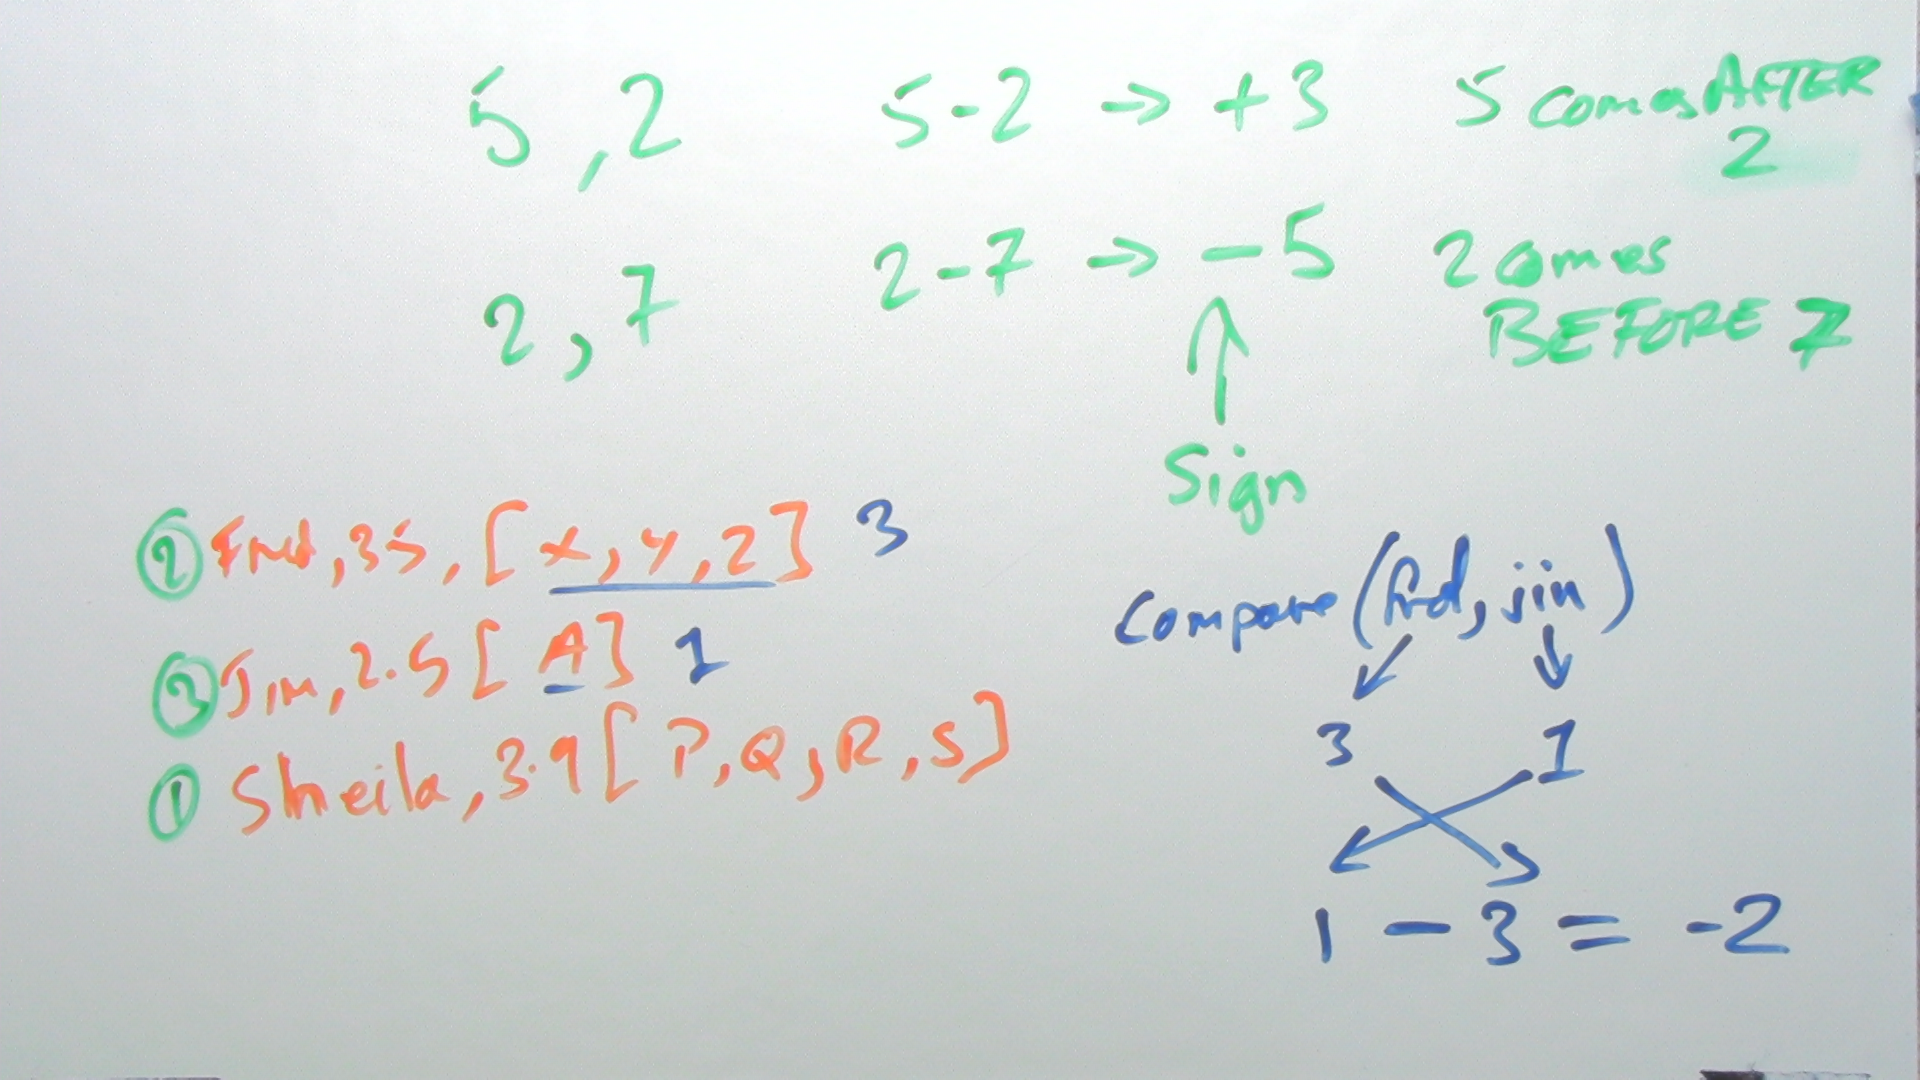 5, 2 5-2 → +3 5 comes AFTER
2
2, 7 2-7 → -5 2 comes
BEFORE 7
↑
Sign
② Fred, 35, [x, y, z] 3
③ Jim, 2.5 [A] 1
① Sheila, 3.9 [P, Q, R, S]
Compare (fred, jim)
3 1
1 - 3 = -2